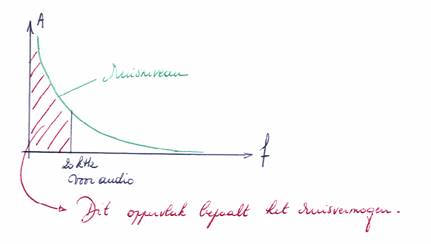 A
ruisniveau
f
20 kHz
voor audio
Dit oppervlak bepaalt het ruisvermogen.